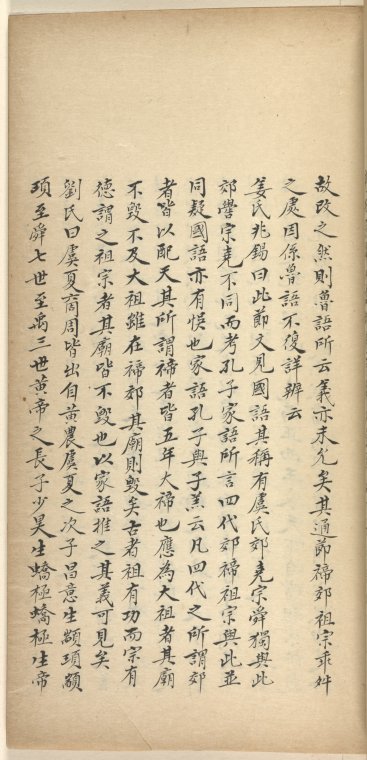 故改之然則魯語所云義亦未允矣其通節禘郊祖宗乖舛
之處因係魯語不復詳辨云
姜氏兆錫曰此節又見國語其稱有虞氏郊堯宗舜獨與此
郊嚳宗堯不同而考孔子家語所言四代郊禘祖宗與此並
同疑國語亦有悞也家語孔子與子羔云凡四代之所謂郊
者皆以配天其所謂禘者皆五年大禘也應為大祖者其廟
不毀不及大祖雖在禘郊其廟則毀矣古者祖有功而宗有
德謂之祖宗者其廟皆不毀也以家語推之其義可見矣
劉氏曰虞夏商周皆出自黃農虞夏之次子昌意生顓頊顓
頊至舜七世至禹三世黃帝之長子少昊生蟜極蟜極生帝